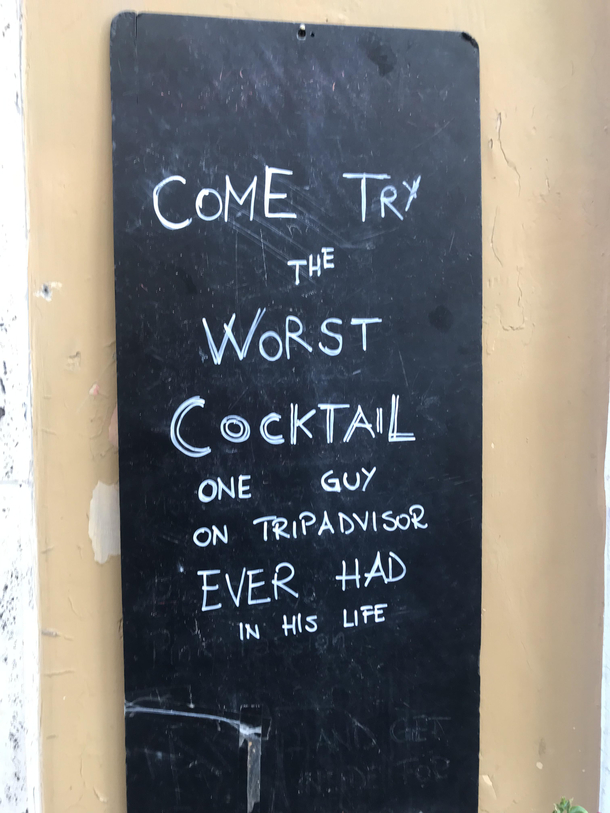 COME TRY
THE
WORST
COCKTAIL
ONE GUY
ON TRIPADVISOR
EVER HAD
IN HIS LIFE
AND GET
TOP